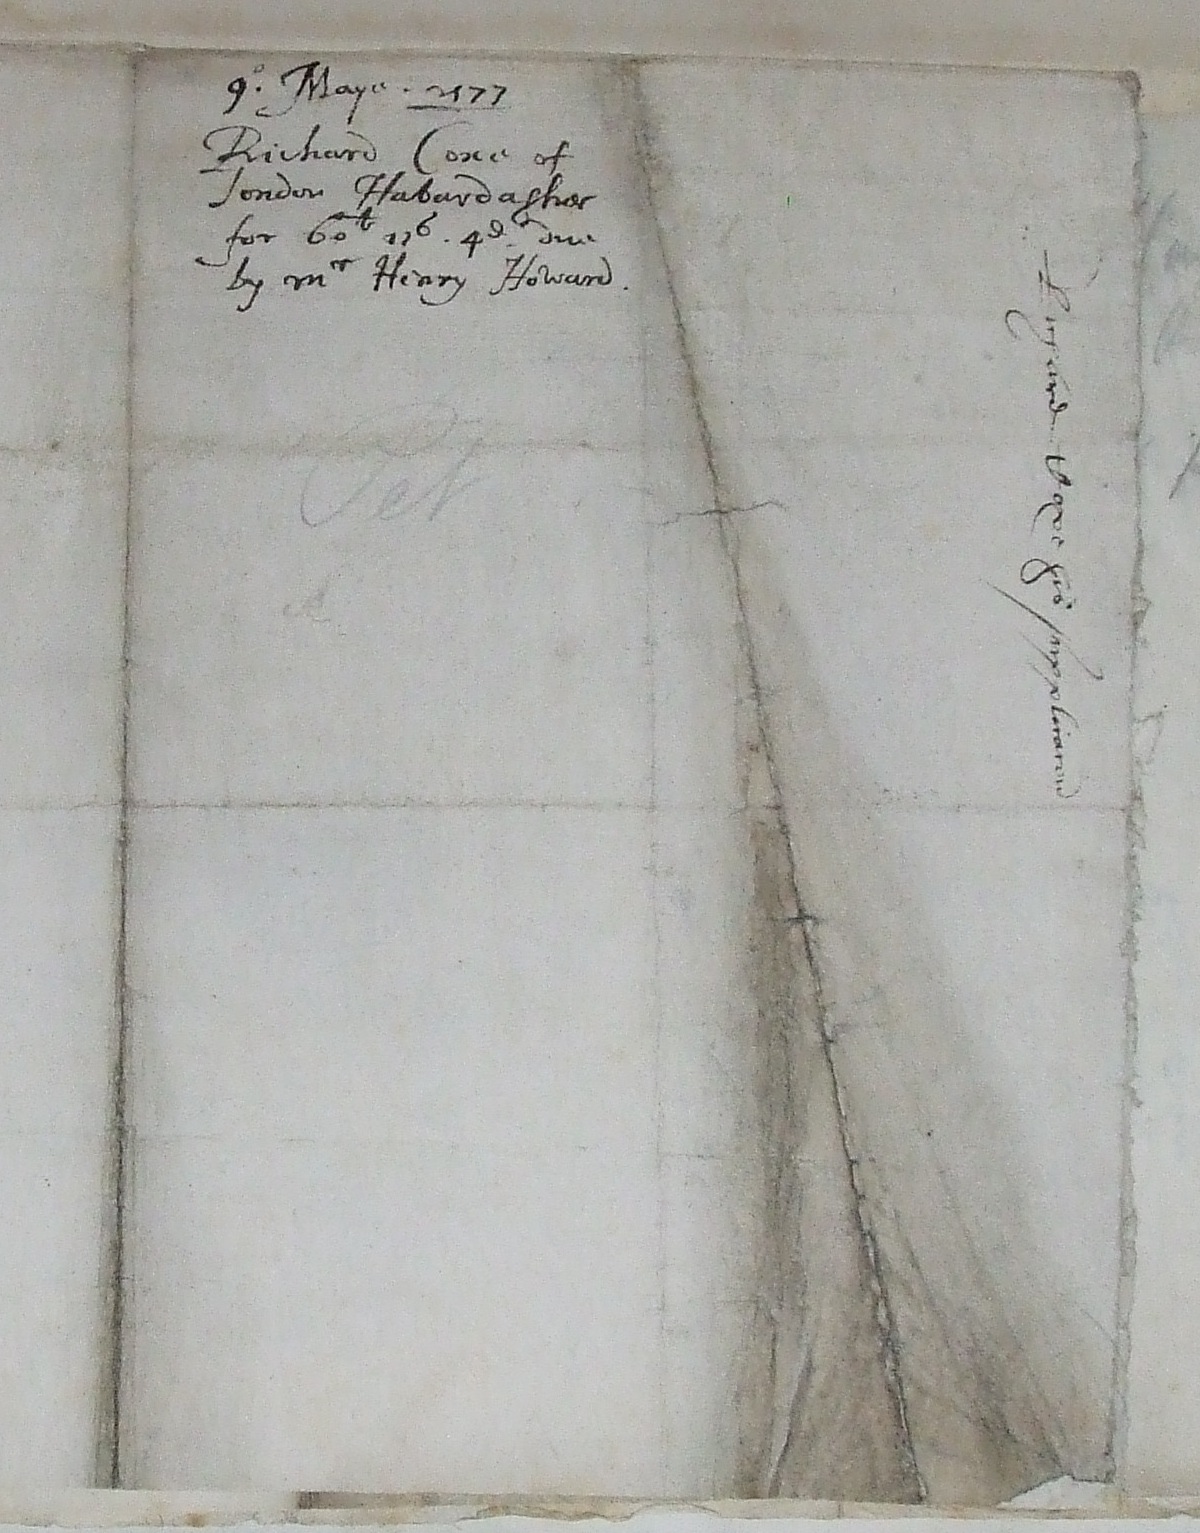 9o. Maye. 1577
Richard Coxe of
london Habardasher
for 60li 11s. 4d. due
by mr Henry Howard.
Pet
Rychard Coxe his supplicacion